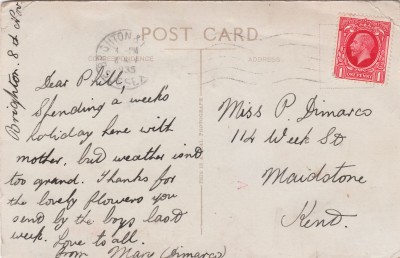 POST CARD
CORRESPONDENCE
ADDRESS
Brighton. 8 d Nov
1935
ONE PENNY
Dear Phill,
Spending a week's
holiday here with
mother, but weather isnt
too grand. Thanks for
the lovely flowers you
send by the boys last
week. Love to all.
From Mary (Dimarco)
Miss P. Dimarco
114 Week St
Maidstone
Kent.